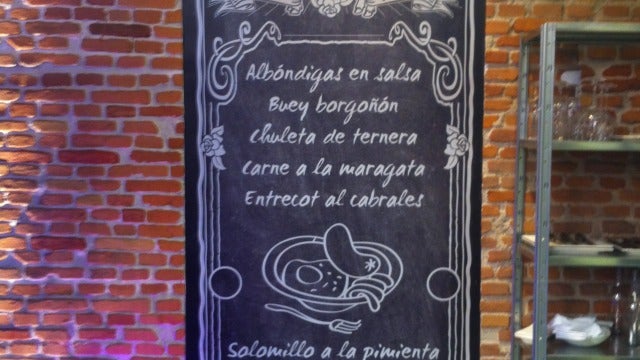 Albóndigas en salsa
Buey borgoñón
Chuleta de ternera
Carne a la maragata
Entrecot al cabrales
Solomillo a la pimienta